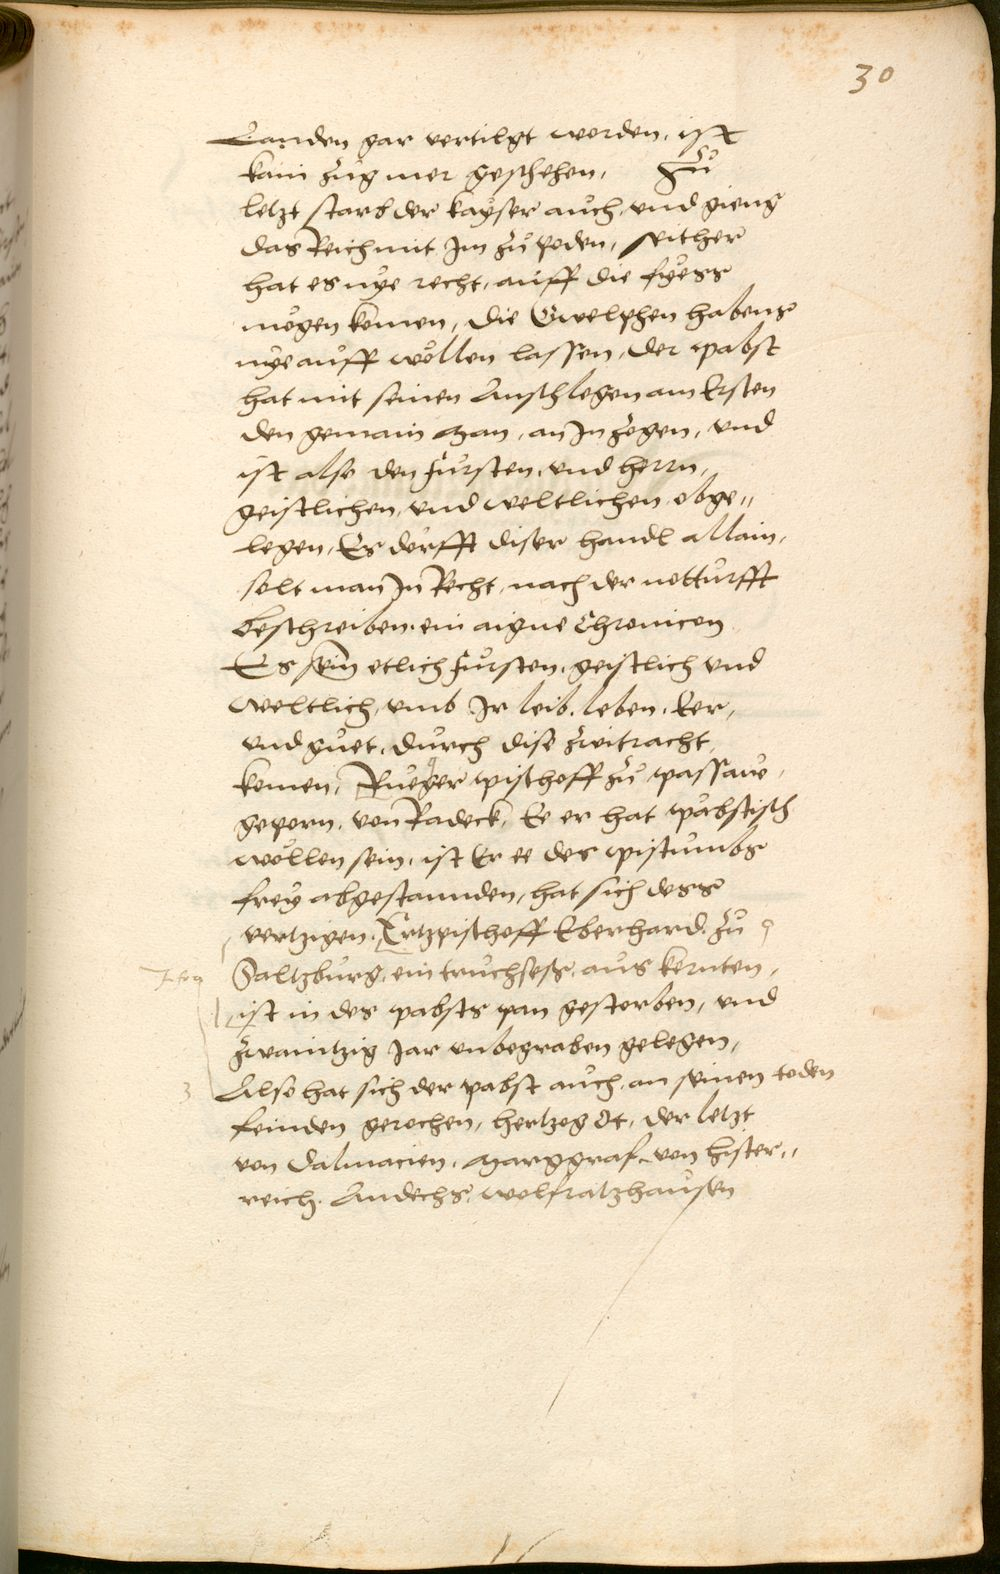 30
Landen gar vertilgt worden, ist
kain zug mer geschehen, Zu
letzt starb der kayser auch, und gieng
das Reich mit Im zu poden, seither
hat es nye recht, auff die fyess
mögen komen, die Gwelphen habens
nye auff wöllen lassen, der pabst
hat mit seinen Anschlegen am Ersten
den gemain man, an In zogen, und
ist also den fürsten, und herrn,
geistlichen, und weltlichen, obge=
legen, Es dörfft diser handl allain,
solt man In Recht, nach der notturfft
beschreiben, ein aigne Chronicon
Es sein etlich fürsten, geistlich und
weltlich, umb Ir leib, leben, Eer,
und guet, durch dise zwitracht,
komen, Rueger pischoff zu passaw,
geporn, von Radeck, Ee er hat pabstisch
wöllen sein, ist Er ee des pistumbs
frey abgestannden, hat sich dess
vertzigen, Ertzpischoff Eberhard zu
Saltzburg, ein truchsess aus kernten,
ist in des pabsts pan gestorben, und
zwaintzig Jar unbegraben gelegen,
3 Also hat sich der pabst auch, an seinen toden
feinden gerochen, hertzog Ot, der letzt
von Dalmacien, Marggraf, von hister=
reich, Andechs, wolfratzhausen